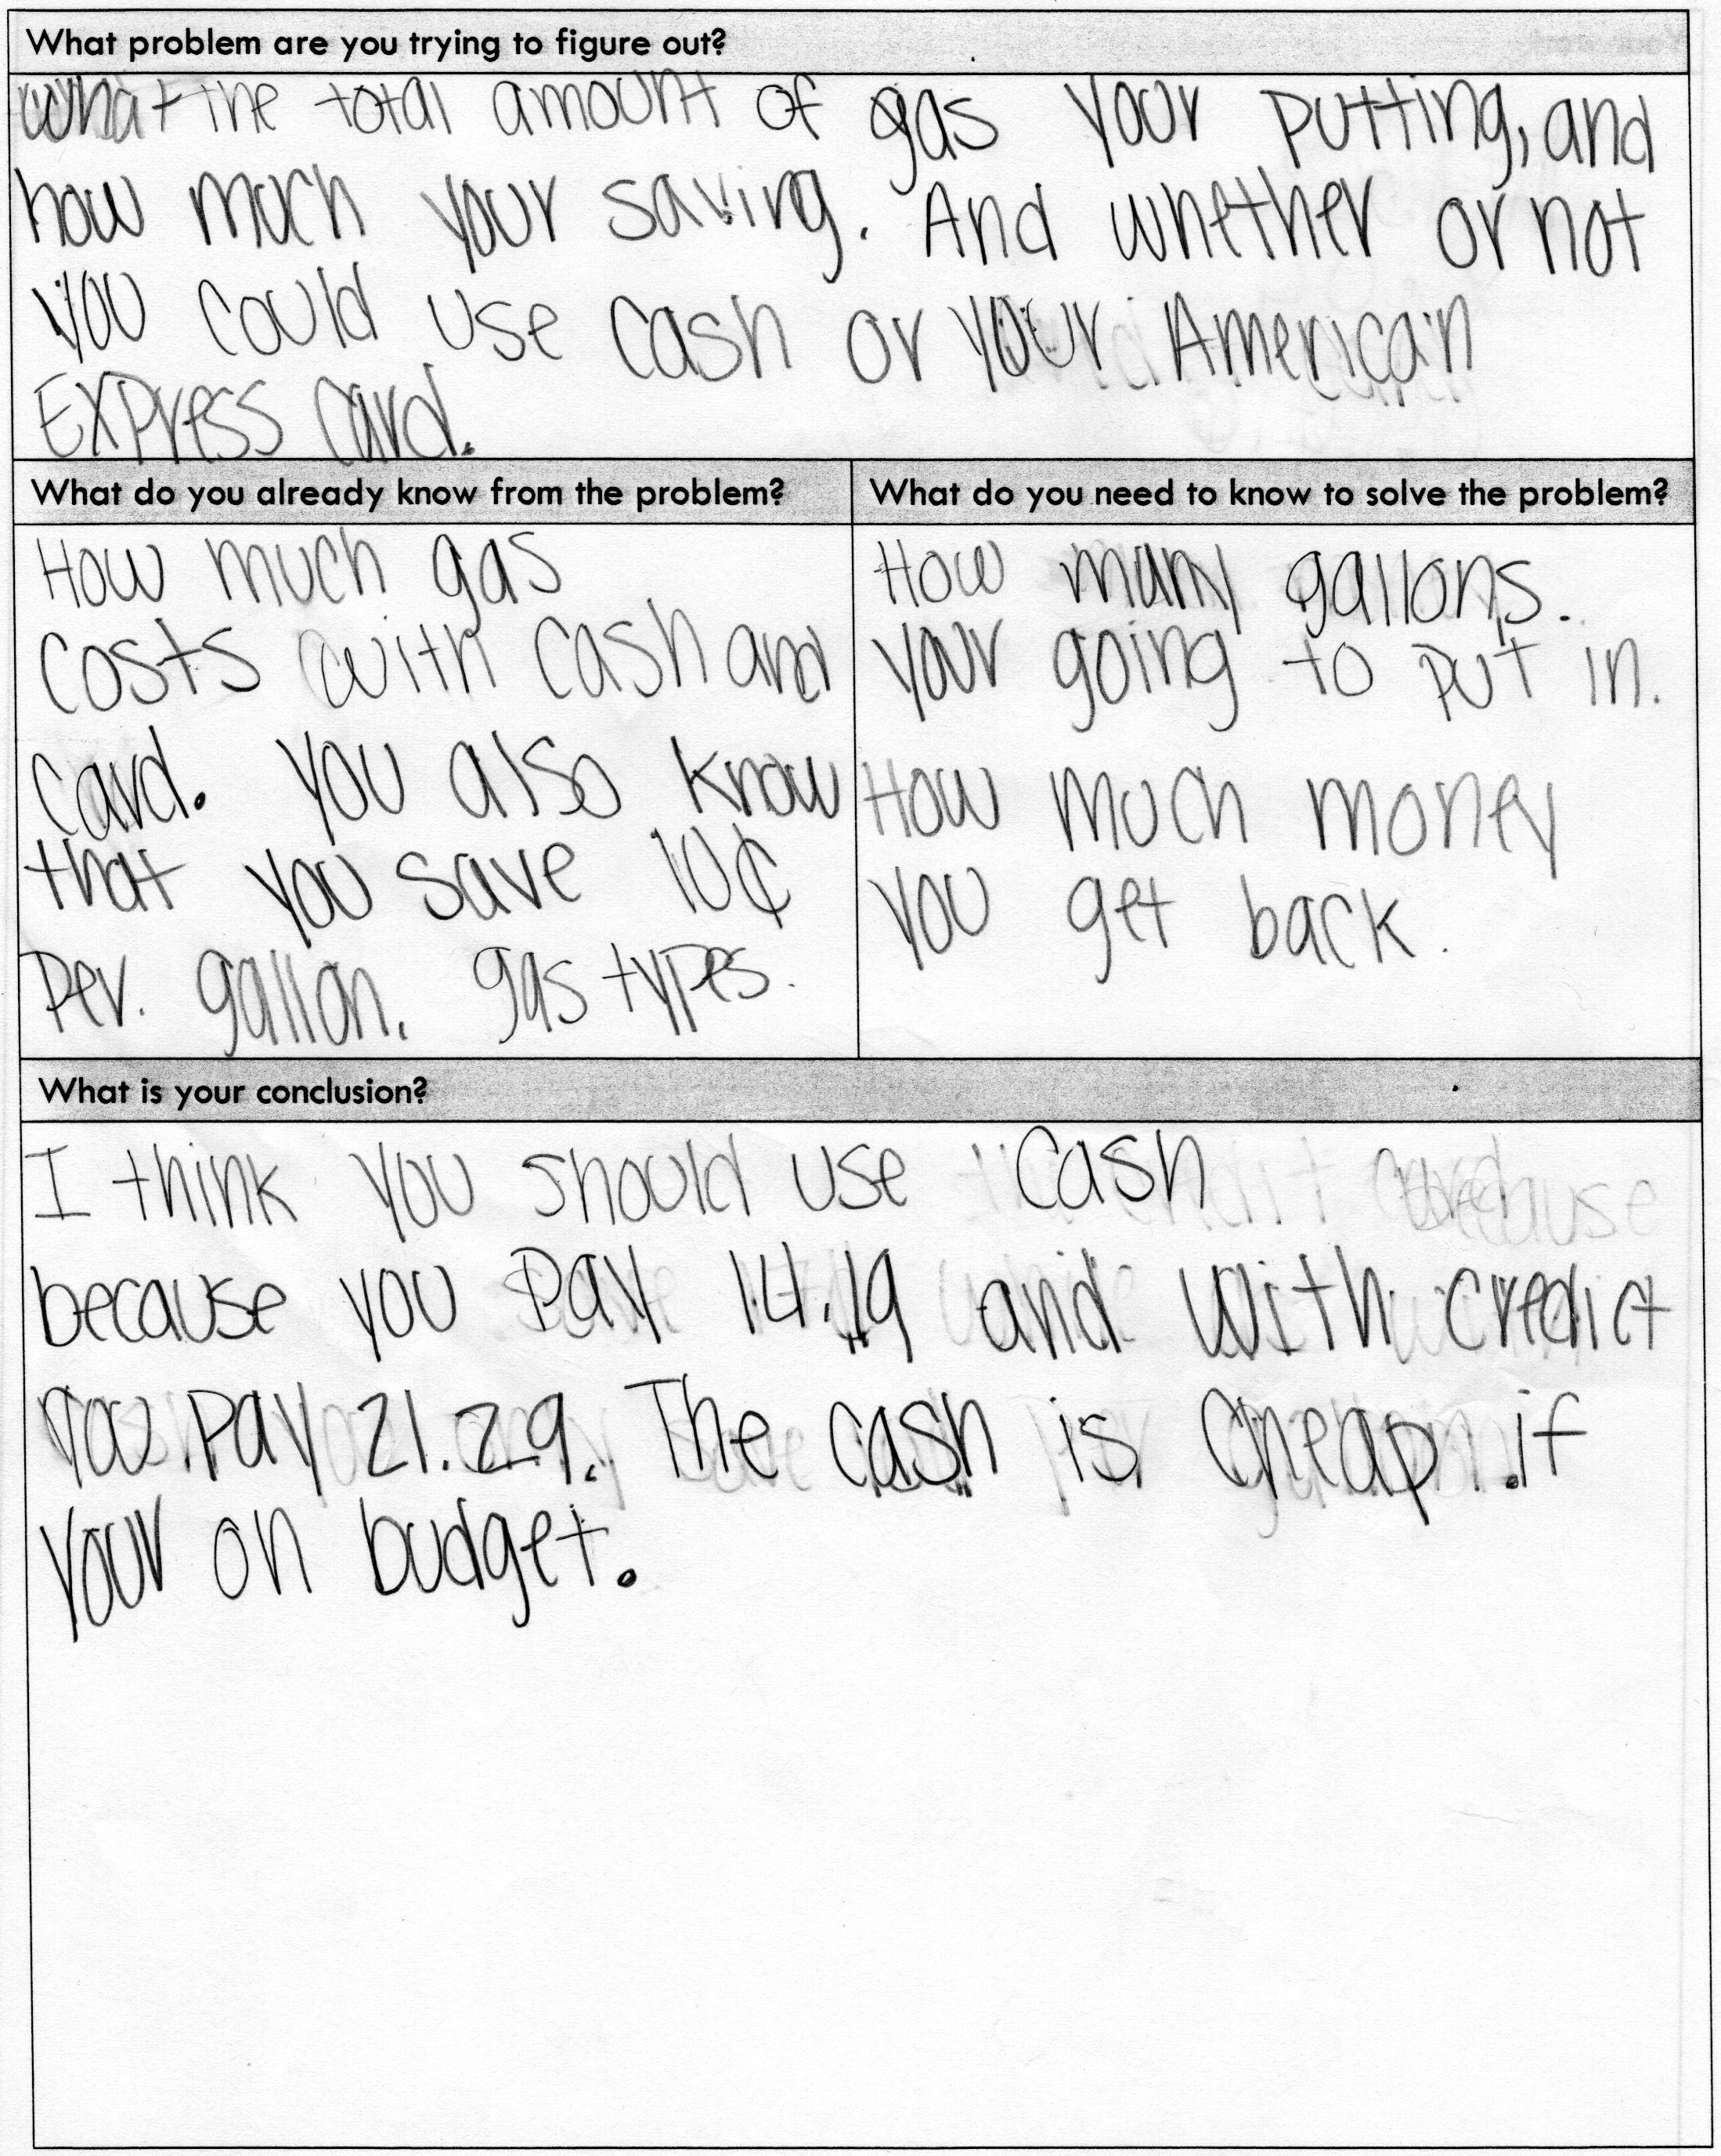 What problem are you trying to figure out?
What the total amount of gas your putting, and
how much your saving. And whether or not
you could use cash or your American
Express card.
What do you already know from the problem?
How much gas
costs with cash and
card. You also know
that you save 10¢
per. gallon. gas types.
What do you need to know to solve the problem?
How many gallons.
your going to put in.
How much money
you get back.
What is your conclusion?
I think you should use cash
because you pay 14.19 and with credict
you pay 21.29. The cash is cheap if
your on budget.